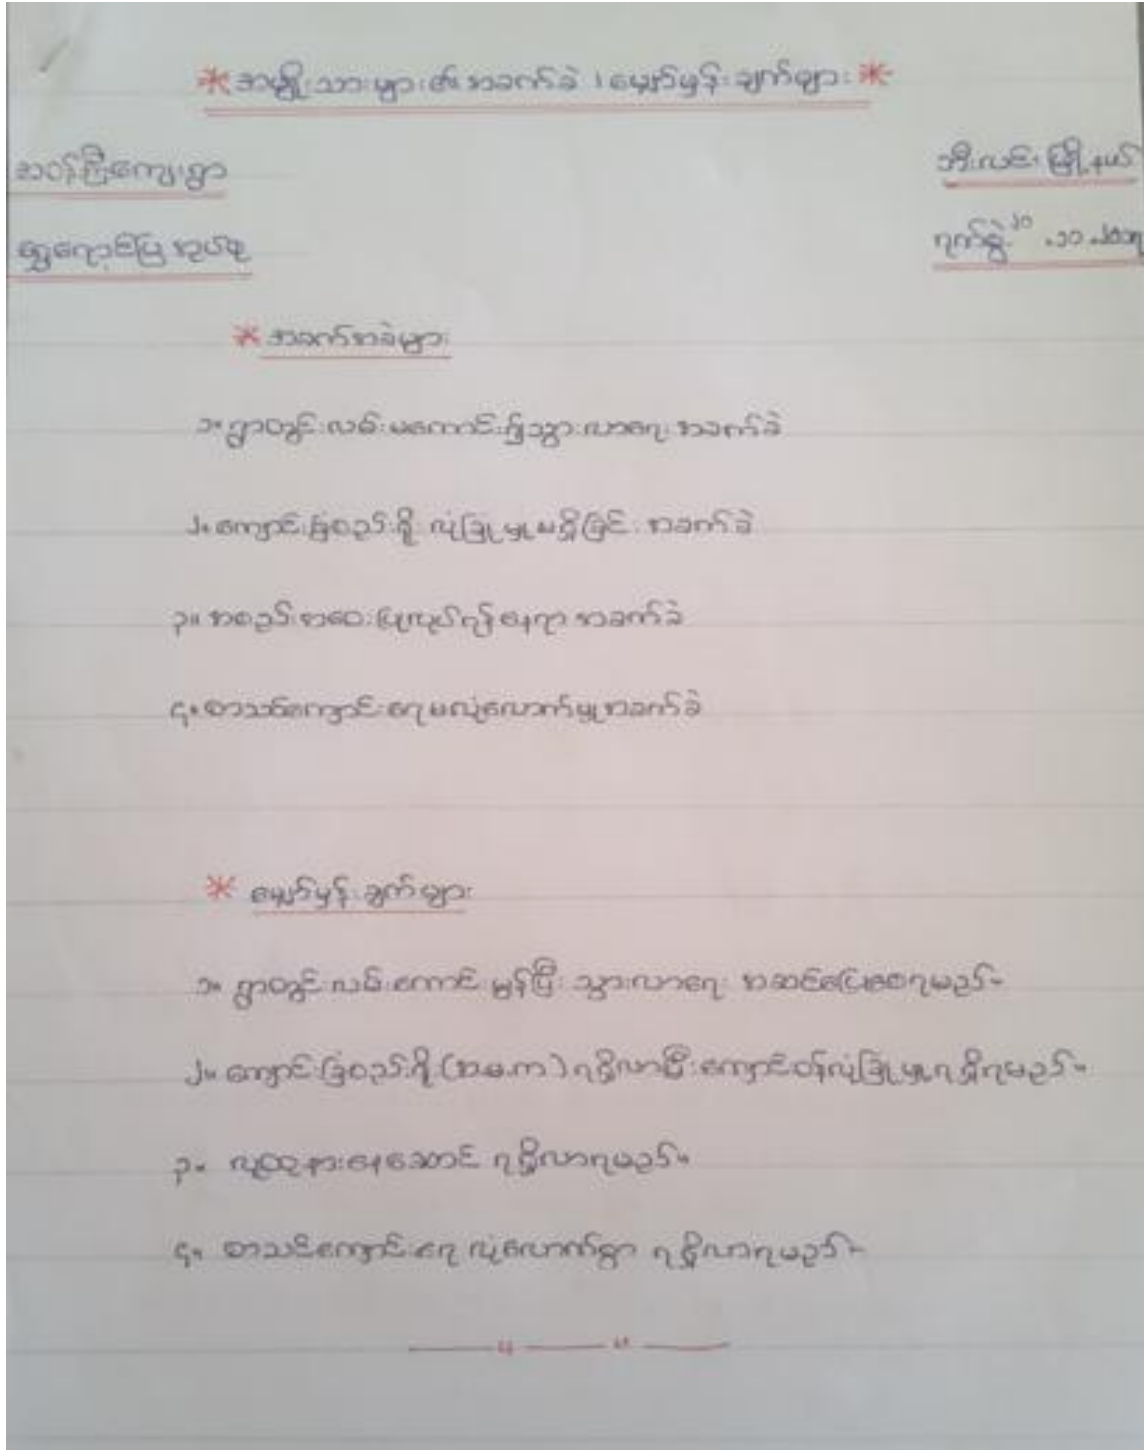 * အမျိုးသားများ၏ အခက်ခဲ ၊ မျှော်မှန်းချက်များ *
ဇာဝန်ကြီးကျေးရွာ ဘီးလင်းမြို့နယ်
ရွှေရောင်ပြ အုပ်စု ရက်စွဲ ၂၀ .၁၁
* အခက်အခဲများ
၁။ ရွာတွင်းလမ်းမကောင်း၍သွားလာရေး အခက်ခဲ
၂။ ကျောင်းခြံစည်းရိုး လုံခြုံမှုမရှိခြင်း အခက်ခဲ
၃။ အစည်းအဝေးပြုလုပ်ရန်နေရာ အခက်ခဲ
၄။ စာသင်ကျောင်းရေမလုံလောက်မှုအခက်ခဲ
* မျှော်မှန်းချက်များ
၁။ ရွာတွင်းလမ်းကောင်းမွန်ပြီး သွားလာရေး အဆင်ပြေစေရမည်။
၂။ ကျောင်းခြံစည်းရိုး (အ.မ.က) ရရှိလာပြီးကျောင်းဝန်လုံခြုံမှုရရှိရမည်။
၃။ လူထုနားနေဆောင် ရရှိလာရမည်။
၄။ စာသင်ကျောင်းရေ လုံလောက်စွာ ရရှိလာရမည်။